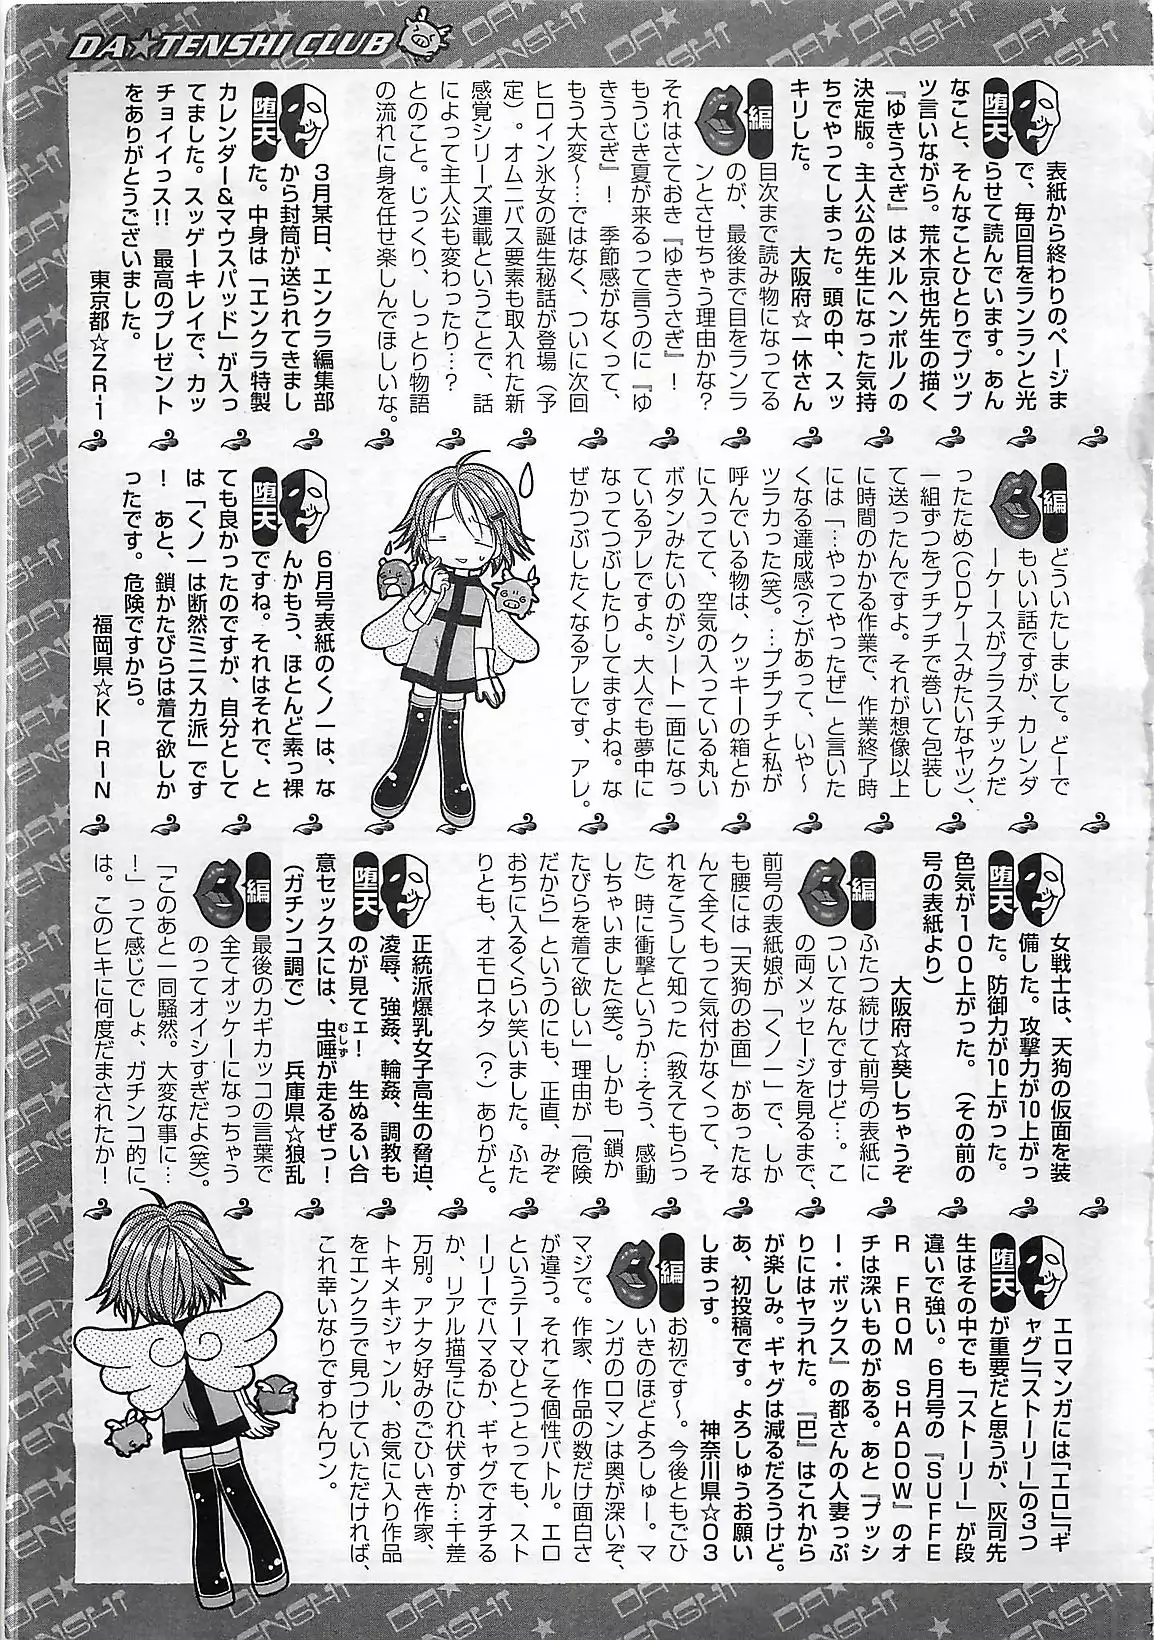 DA★TENSHI CLUB
堕天
表紙から終わりのページま
で、毎回目をランランと光
らせて読んでいます。あん
なこと、そんなことひとりでブツブ
ツ言いながら。荒木京也先生の描く
『ゆきうさぎ』はメルヘンポルノの
決定版。主人公の先生になった気持
ちでやってしまった。頭の中、スッ
キリした。 大阪府☆一休さん
編
目次まで読み物になってる
のが、最後まで目をランラ
ンとさせちゃう理由かな?
それはさておき『ゆきうさぎ』!
もうじき夏が来るって言うのに『ゆ
きうさぎ』! 季節感がなくって、
もう大変〜…ではなく、ついに次回
ヒロイン氷女の誕生秘話が登場(予
定)。オムニバス要素も取入れた新
感覚シリーズ連載ということで、話
によって主人公も変わったり…?
とのこと。じっくり、しっとり物語
の流れに身を任せ楽しんでほしいな。
堕天
3月某日、エンクラ編集部
から封筒が送られてきまし
た。中身は「エンクラ特製
カレンダー&マウスパッド」が入っ
てました。スッゲーキレイで、カッ
チョイイっス!! 最高のプレゼント
をありがとうございました。
東京都☆ZR-i
編
どういたしまして。どーで
もいい話ですが、カレンダ
ーケースがプラスチックだ
ったため(CDケースみたいなヤツ)、
一組ずつをプチプチで巻いて包装し
て送ったんですよ。それが想像以上
に時間のかかる作業で、作業終了時
には「…やってやったぜ」と言いた
くなる達成感(?)があって、いや〜
ツラカった(笑)。…プチプチと私が
呼んでいる物は、クッキーの箱とか
に入ってて、空気の入っている丸い
ボタンみたいのがシート一面になっ
ているアレですよ。大人でも夢中に
なってつぶしたりしてますよね。な
ぜかつぶしたくなるアレです、アレ。
堕天
6月号表紙のくノ一は、な
んかもう、ほとんど素っ裸
ですね。それはそれで、と
ても良かったのですが、自分として
は「くノ一は断然ミニスカ派」です
! あと、鎖かたびらは着て欲しか
ったです。危険ですから。
福岡県☆KIRIN
堕天
女戦士は、天狗の仮面を装
備した。攻撃力が10上がっ
た。防御力が10上がった。
色気が100上がった。(その前の
号の表紙より)
大阪府☆葵しちゃうぞ
編
ふたつ続けて前号の表紙に
ついてなんですけど…。こ
の両メッセージを見るまで、
前号の表紙娘が「くノ一」で、しか
も腰には「天狗のお面」があったな
んて全くもって気付かなくって、そ
れをこうして知った(教えてもらっ
た)時に衝撃というか…そう、感動
しちゃいました(笑)。しかも「鎖か
たびらを着て欲しい」理由が「危険
だから」というのにも、正直、みぞ
おちに入るくらい笑いました。ふた
りとも、オモロネタ(?)ありがと。
堕天
(ガチンコ調で) 兵庫県☆狼乱
編
最後のカギカッコの言葉で
全てオッケーになっちゃう
のってオイシすぎだよ(笑)。
「このあと一同騒然。大変な事に…
!」って感じでしょ、ガチンコ的に
は。このヒキに何度だまされたか!
堕天
エロマンガには「エロ」「ギ
ャグ」「ストーリー」の3つ
が重要だと思うが、灰司先
生はその中でも「ストーリー」が段
違いで強い。6月号の『SUFFE
R FROM SHADOW』のオ
チは深いものがある。あと『プッシ
ー・ボックス』の都さんの人妻っぷ
りにはヤラれた。『巴』はこれから
が楽しみ。ギャグは減るだろうけど。
あ、初投稿です。よろしゅうお願い
しまっす。 神奈川県☆03
編
お初です〜。今後ともごひ
いきのほどよろしゅー。マ
ンガのロマンは奥が深いぞ、
マジで。作家、作品の数だけ面白さ
が違う。それこそ個性バトル。エロ
というテーマひとつとっても、スト
ーリーでハマるか、ギャグでオチる
か、リアル描写にひれ伏すか…千差
万別。アナタ好みのごひいき作家、
トキメキジャンル、お気に入り作品
をエンクラで見つけていただければ、
これ幸いなりですわんワン。